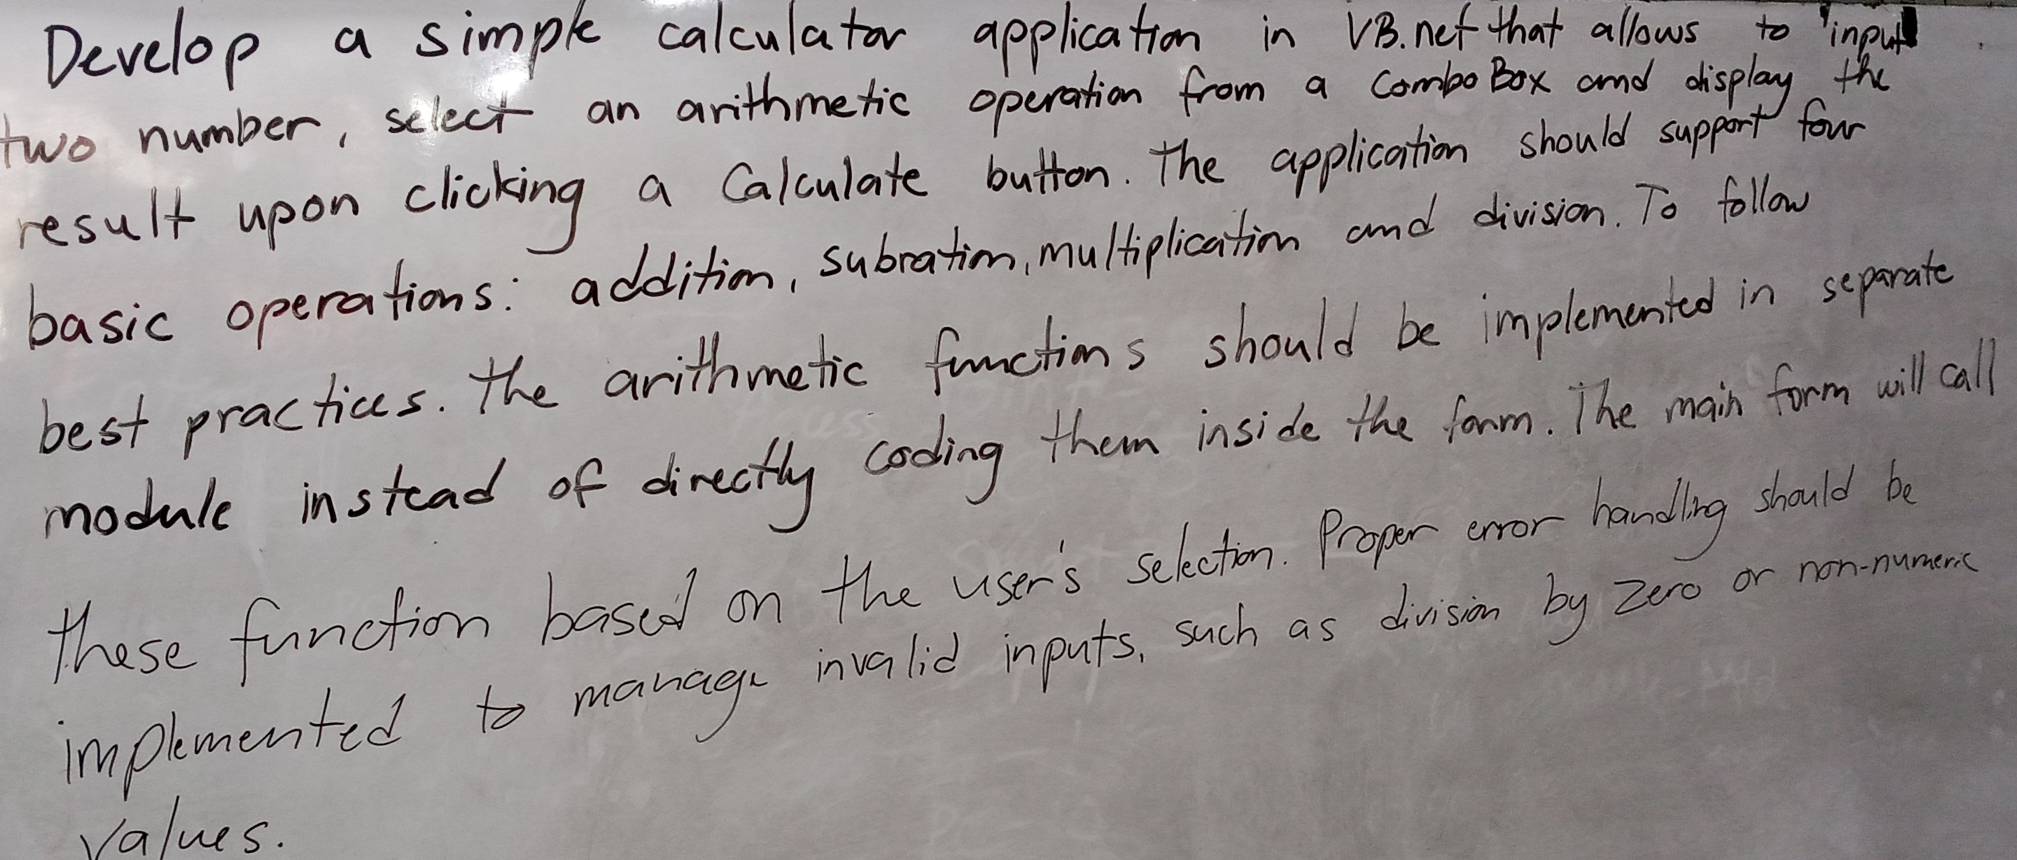 Develop a simple calculator application in VB.net that allows to input
two number, select an arithmetic operation from a Combo Box and display the
result upon clicking a Calculate button. The application should support four
basic operations: addition, subration, multiplication and division. To follow
best practices. The arithmetic functions should be implemented in separate
module instead of directly coding them inside the form. The main form will call
these function based on the user's selection. Proper error handling should be
implemented to manage invalid inputs, such as division by zero or non-numeric
values.